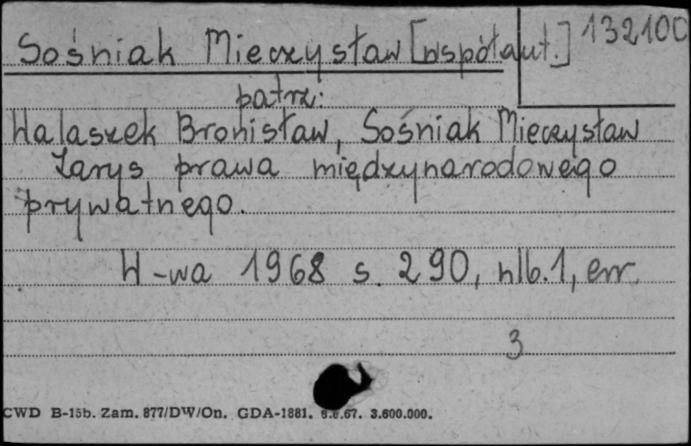 Sośniak Mieczysław [współaut.] 132100
patrz:
Walaszek Bronisław, Sośniak Mieczysław
Zarys prawa międzynarodowego
prywatnego.
W-wa 1968 s. 290, nlb.1, err.
3
CWD B-15b. Zam. 877/DW/On. GDA-1881. 6.6.67. 3.600.000.